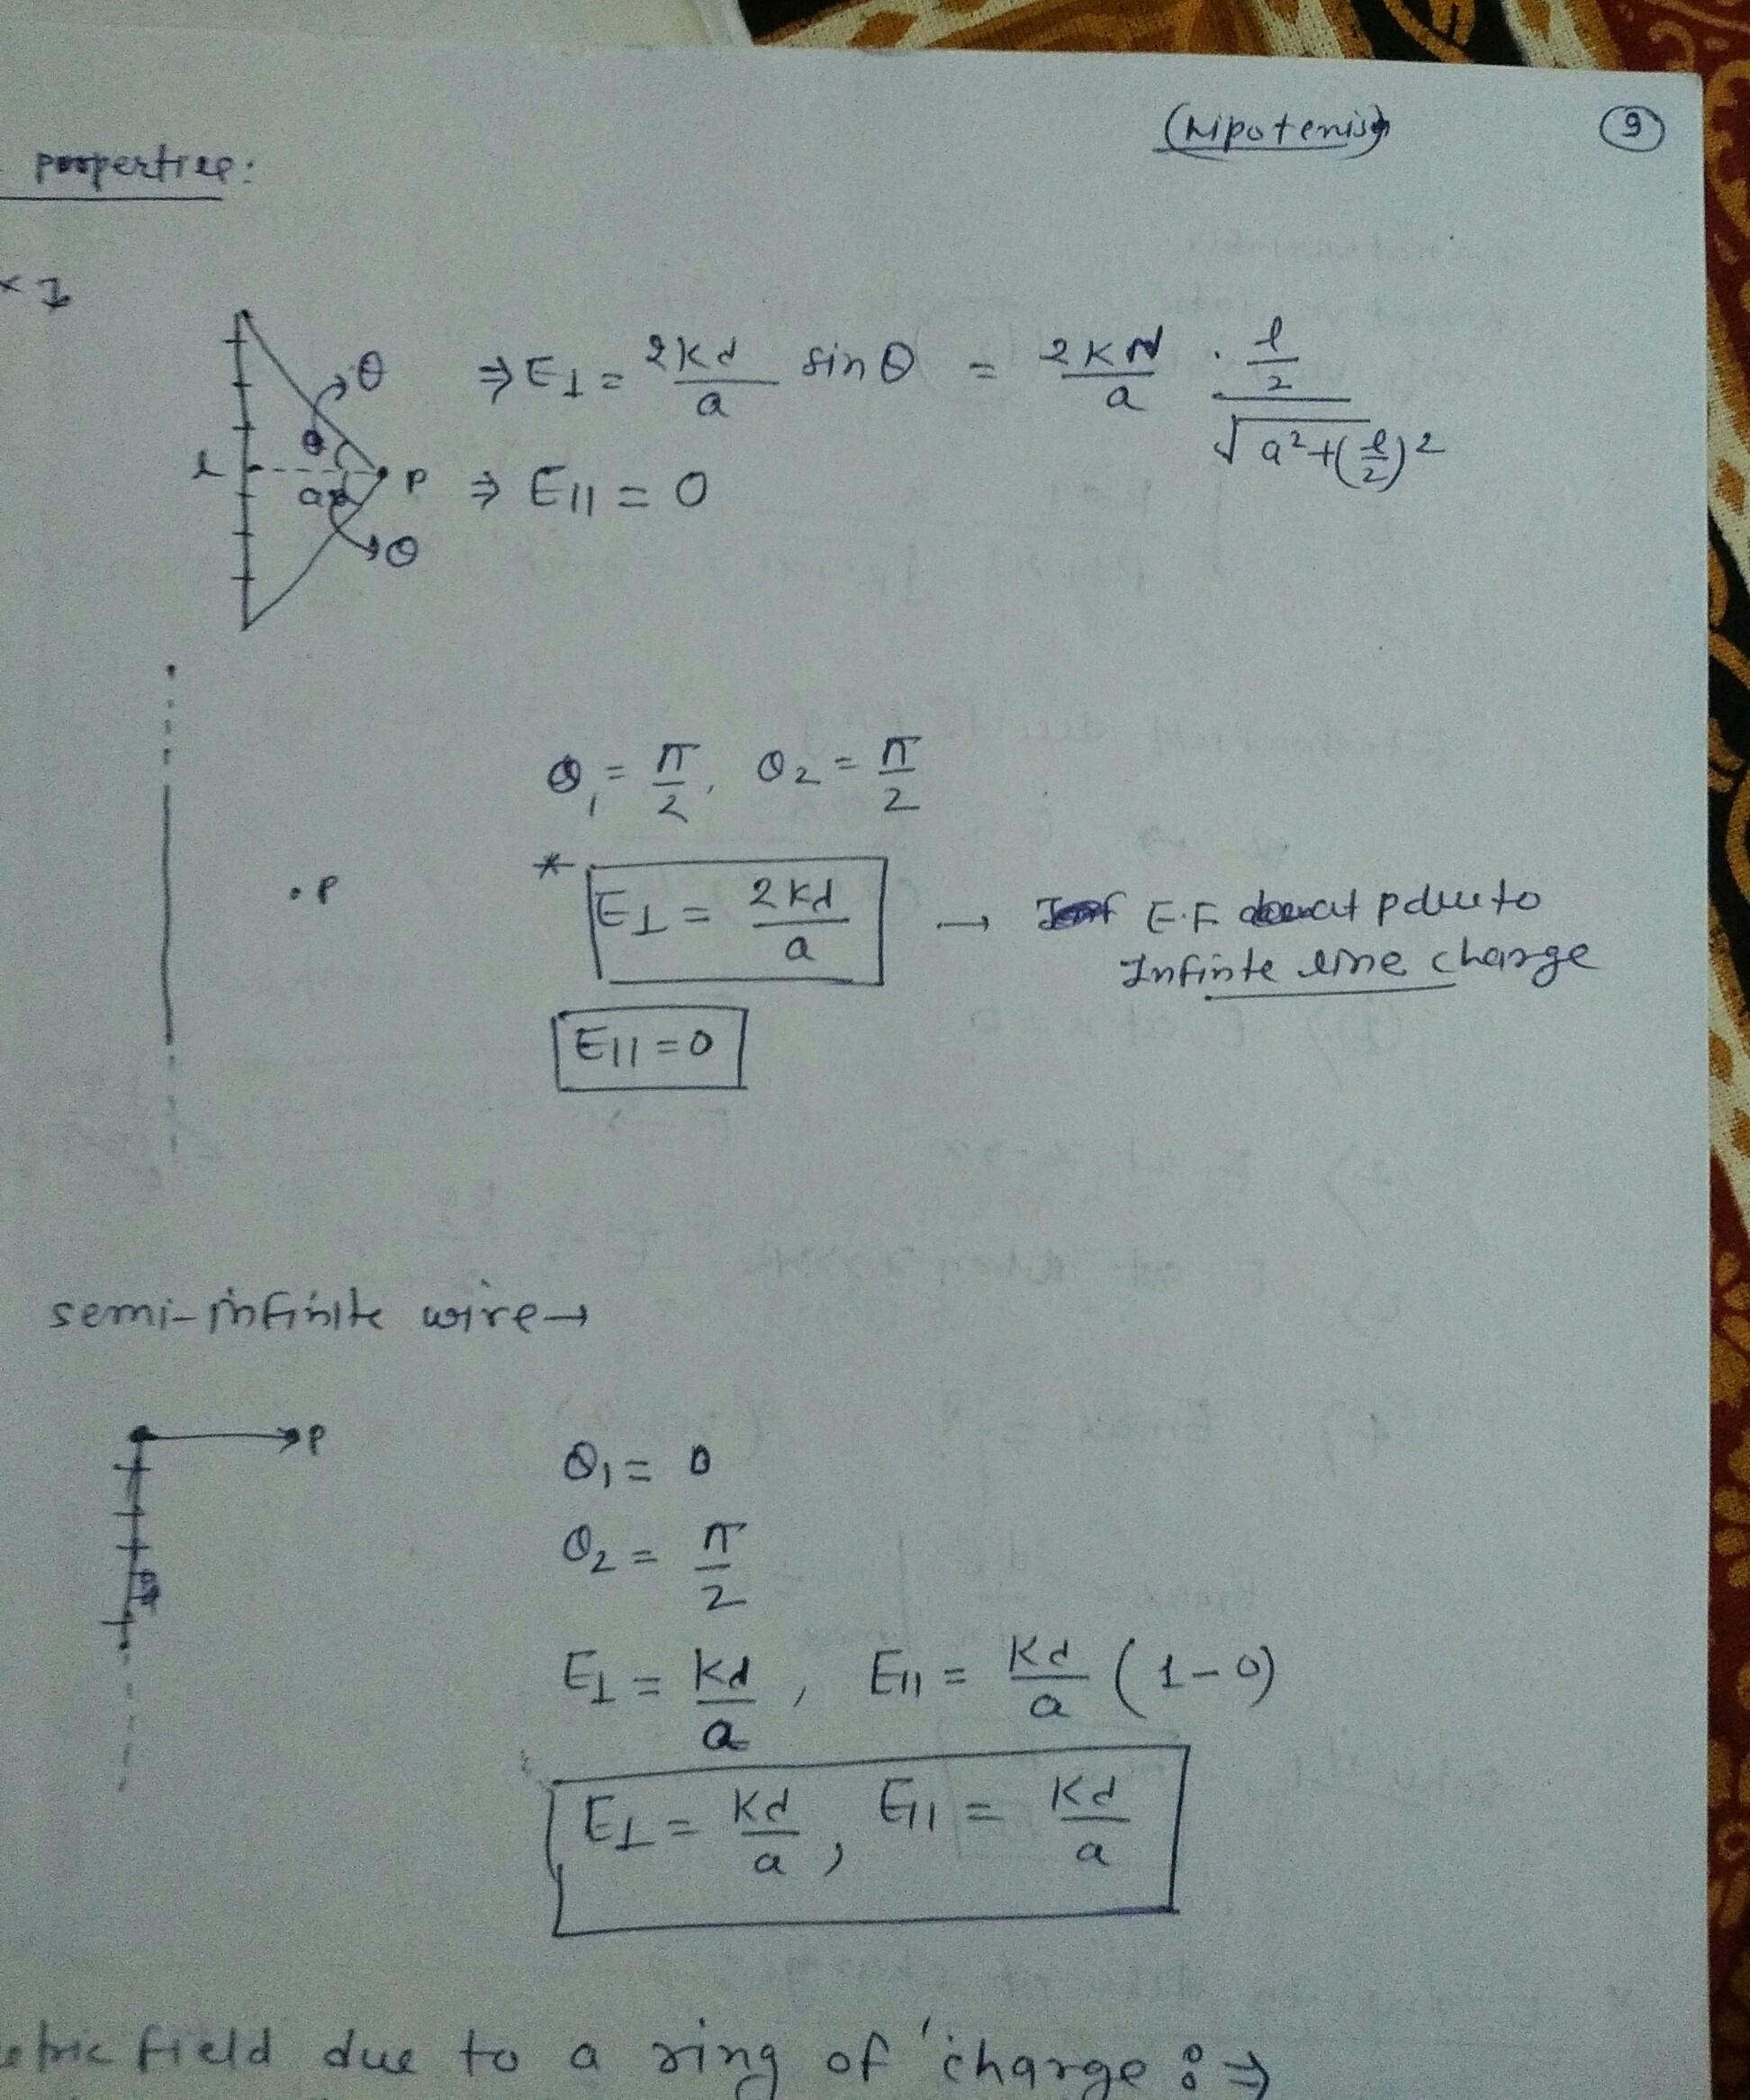 (Nipotenis) 9
properties:
E⊥ = 2Kd/a sinθ = 2Kd/a · (l/2)/√(a²+(l/2)²)
θ
θ
l a P ⇒ E|| = 0
θ
θ₁ = π/2, θ₂ = π/2
.P * E⊥ = 2Kd/a → E.F at P due to
Infinte line charge
E|| = 0
semi-infinite wire→
P θ₁ = 0
θ₂ = π/2
E⊥ = Kd/a, E|| = Kd/a (1-0)
E⊥ = Kd/a, E|| = Kd/a
field due to a ring of charge : ⇒